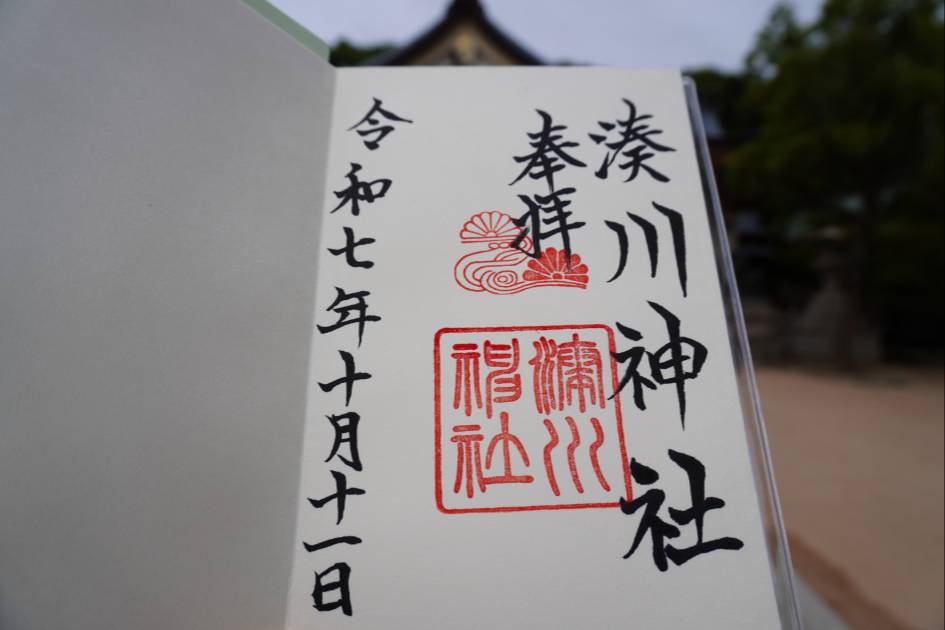 湊川神社
奉拝
湊川
神社
令和七年十月十一日